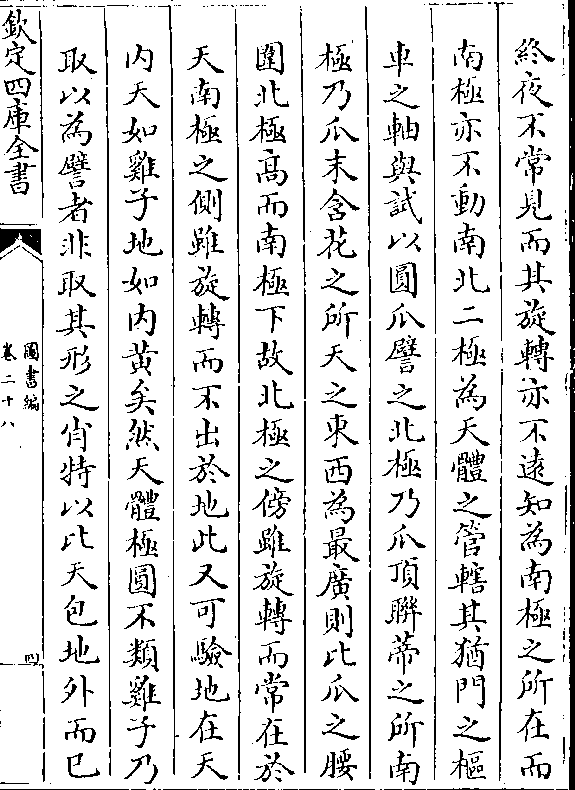 終夜不常見而其旋轉亦不遠知為南極之所在而
南極亦不動南北二極為天體之管轄其猶門之樞
車之軸與試以圓爪譬之北極乃爪頂聯蒂之所南
極乃爪末含花之所天之東西為最廣則比爪之腰
圍北極高而南極下故北極之傍雖旋轉而常在於
天南極之側雖旋轉而不出於地此又可驗地在天
内天如雞子地如内黄矣然天體極圓不類雞子乃
取以為譬者非取其形之肖特以比天包地外而已
欽定四庫全書
圖書編
卷二十八
四